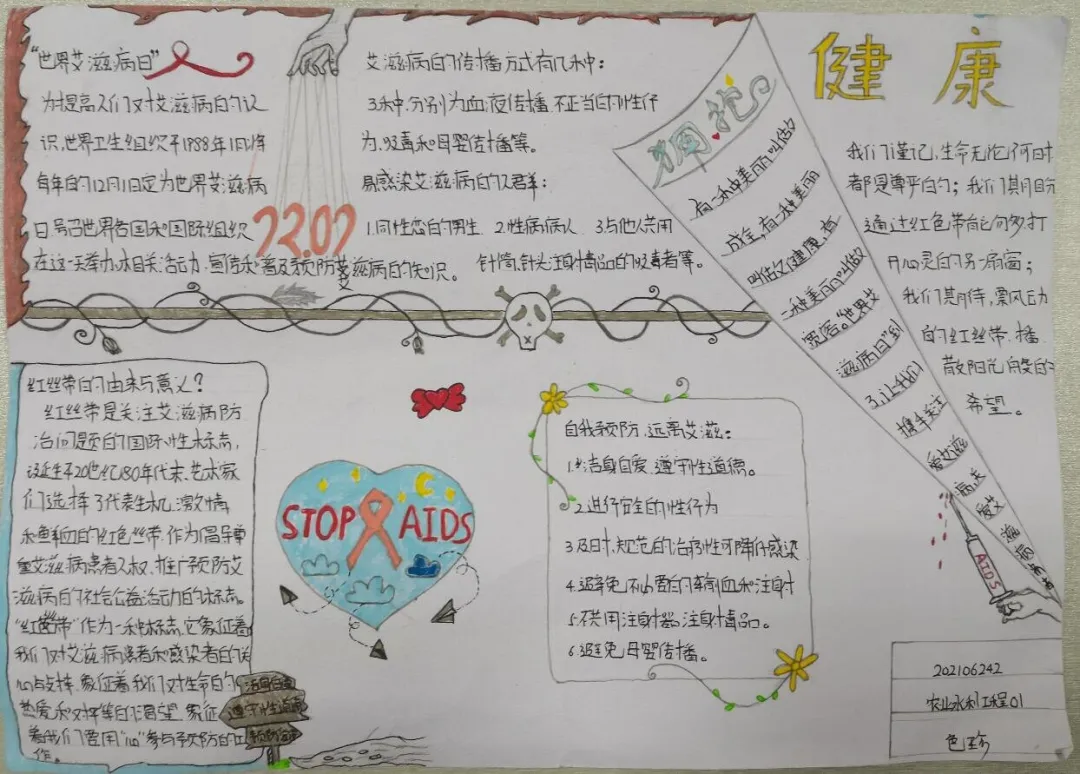 “世界艾滋病日”
为提高人们对艾滋病的认
识,世界卫生组织于1988年1月将
每年的12月1日定为世界艾滋病
日号召世界各国和国际组织
在这一天举办相关活动,宣传和普及预防艾滋病的知识。
艾滋病的传播方式有几种:
3种.分别为血液传播.不正当的性行
为.吸毒和母婴传播等。
易感染艾滋病的人群:
1.同性恋的男生. 2.性病病人. 3.与他人共用
针筒,针头注射毒品的吸毒者等。
拥抱
有一种美丽叫做
成全,有一种美丽
叫做健康,有
一种美丽叫做
“世界艾
滋病日”到
了,让我们
携手关注
爱艾滋
病,关
爱艾
滋病
健康
我们谨记,生命无论何时
都是尊平的;我们期盼
通过红色带
开心灵的另一扇窗;
我们期待,飘动
的红丝带.播
散阳光
希望。
红丝带的由来与意义?
红丝带是关注艾滋病防
治问题的国际性标志,
诞生于20世纪80年代末.艺术家
们选择了代表生机.激情
和鲜血的红色丝带.作为倡导尊
重艾滋病患者人权.推广预防艾
滋病的社会公益活动的标志。
“红丝带”作为一种标志.它象征着
我们对艾滋病患者和感染者的关
心与支持.象征着我们对生命的
热爱和对平等的渴望.象征
着我们要用“心”参与预防的工
作。
洁身自爱
遵守性道德
STOP AIDS
自我预防,远离艾滋:
1.洁身自爱.遵守性道德。
2.进行安全的性行为
3.及时,规范的治疗性可降低感染
4.避免不必要的输血和注射
5.不共用注射器.注射毒品。
6.避免母婴传播。
AIDS
202106242
农业水利工程01